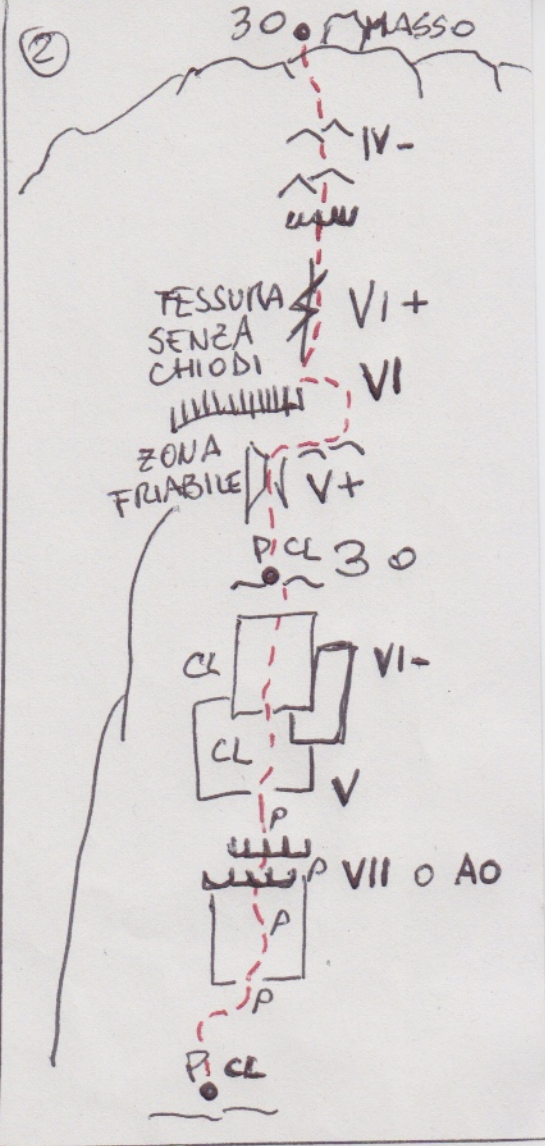 2
30 MASSO
IV-
FESSURA
SENZA
CHIODI
VI+
VI
ZONA
FRIABILE
V+
P CL 30
CL
VI-
CL
V
P
P VII O A0
P
P
P CL